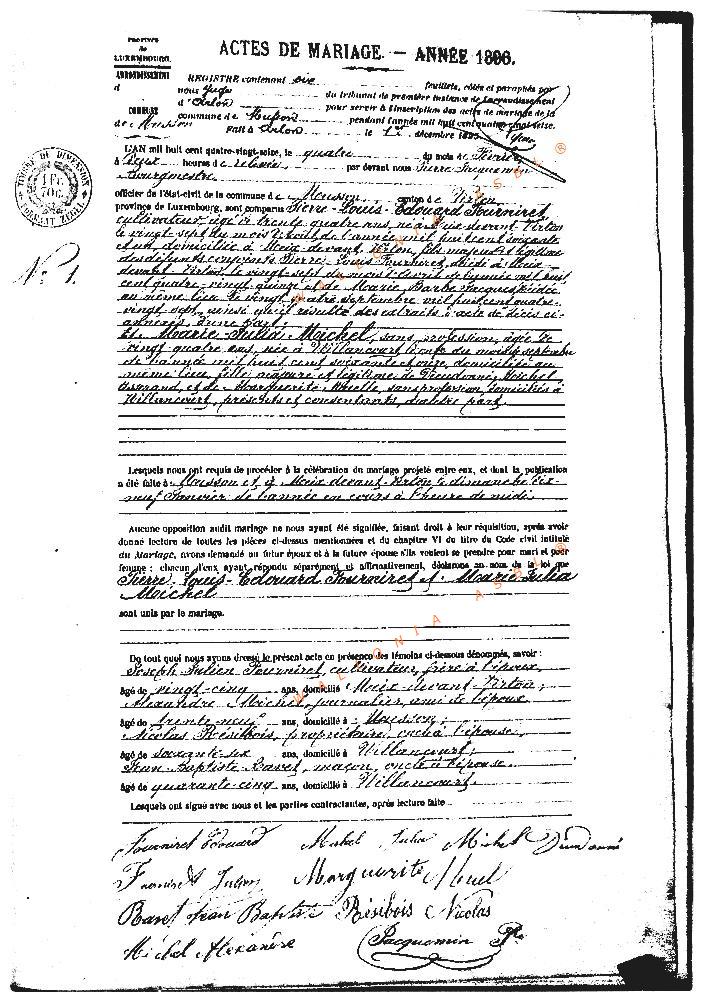 PROVINCE
de
LUXEMBOURG.
ARRONDISSEMENT
d
COMMUNE
de Musson
ACTES DE MARIAGE. — ANNÉE 1896.
REGISTRE contenant six feuillets, cotés et paraphés par
nous Juge du tribunal de première instance de l'arrondissement
d'Arlon pour servir à l'inscription des actes de mariage de la
commune de Musson pendant l'année mil huit cent quatre-vingt-seize.
Fait à Arlon le 1er décembre 1895.
TIMBRE DE DIMENSION
1 Fr.
70 c.
N° 1.
L'AN mil huit cent quatre-vingt-seize, le quatre du mois de Février
à deux heures de relevée par devant nous Pierre Jacquemin
Bourgmestre
officier de l'état-civil de la commune de Musson canton de Virton
province de Luxembourg, sont comparus Pierre-Louis-Edouard Fourniret,
cultivateur, âgé de trente quatre ans, né à Meix devant Virton
le vingt-sept du mois d'Août de l'année mil huit cent soixante
et un, domicilié à Meix-devant-Virton, fils majeur et légitime
des défunts conjoints Pierre-Louis Fourniret, décédé à Meix-
devant-Virton, le vingt-sept du mois d'Avril de l'année mil huit
cent quatre-vingt quinze et de Marie Barbe Jacques décédée
au même lieu le vingt quatre septembre mil huit cent quatre-
vingt-sept, ainsi qu'il résulte des extraits d'acte de décès ci-
annexés, d'une part;
Et Marie-Julia Michel, sans profession, âgée de
vingt quatre ans, née à Willancourt, le du mois de septembre
de l'année mil huit cent soixante et onze, domiciliée au
même lieu, fille majeure et légitime de Dieudonné Michel,
et de Marguerite Muelle, sans profession, domiciliés à
Willancourt, présents et consentants, d'autre part.
Lesquels nous ont requis de procéder à la célébration du mariage projeté entre eux, et dont la publication
a été faite à Musson et à Meix devant-Virton le dimanche dix-
neuf Janvier de l'année en cours à l'heure de midi.
Aucune opposition audit mariage ne nous ayant été signifiée, faisant droit à leur réquisition, après avoir
donné lecture de toutes les pièces ci-dessus mentionnées et du chapitre VI du titre du Code civil intitulé
du Mariage, avons demandé au futur époux et à la future épouse s'ils veulent se prendre pour mari et pour
femme : chacun d'eux ayant répondu séparément et affirmativement, déclarons au nom de la loi que
Pierre-Louis-Edouard Fourniret et Marie Julia
Michel
sont unis par le mariage.
De tout quoi nous avons dressé le présent acte en présence des témoins ci-dessous dénommés, savoir :
Joseph Julien Fourniret, cultivateur, frère à l'époux
âgé de vingt-cinq ans, domicilié à Meix-devant-Virton;
Alexandre Michel, journalier, ami de l'époux
âgé de trente-neuf ans, domicilié à Musson;
Nicolas Résibois, propriétaire, oncle à l'épouse,
âgé de soixante-six ans, domicilié à Willancourt;
Jean Baptiste Bavet, maçon, oncle à l'épouse.
âgé de quarante-cinq ans, domicilié à Willancourt.
Lesquels ont signé avec nous et les parties contractantes, après lecture faite
Fourniret Edouard Michel Julia Michel Dieudonné
Fourniret Julien Marguerite Muel
Bavet Jean Baptiste Résibois Nicolas
Michel Alexandre Jacquemin
WALLONIA ASBL ®
WALLONIA ASBL ®